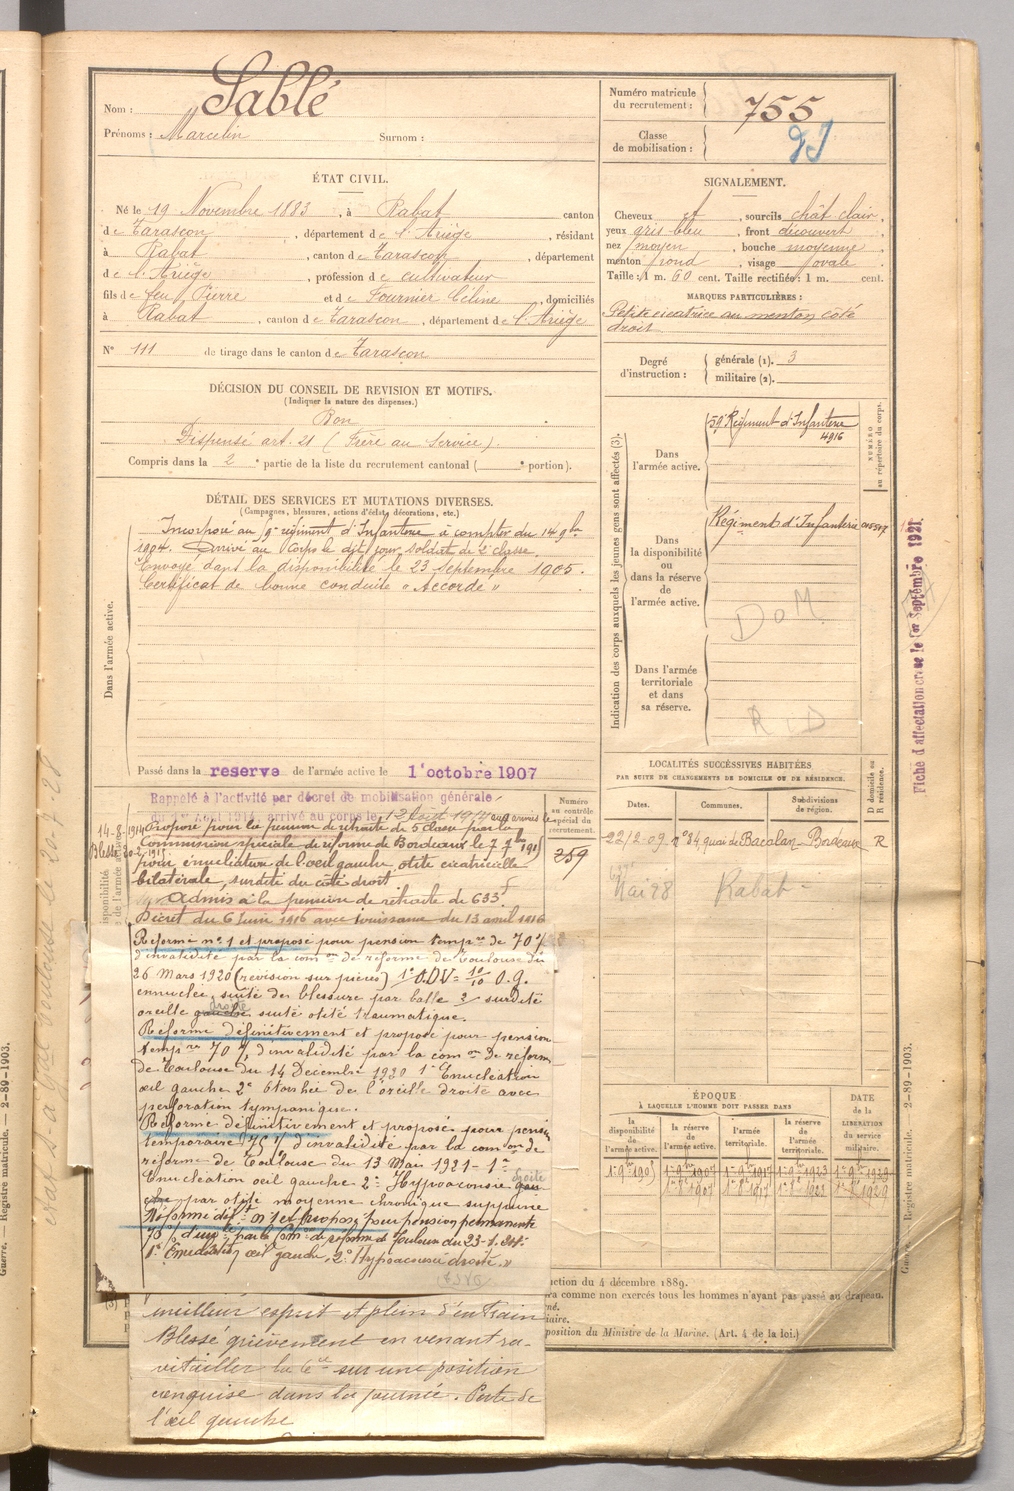 Nom : Sablé
Prénoms : Marcelin Surnom :
Numéro matricule
du recrutement : 755
Classe
de mobilisation :
ÉTAT CIVIL.
Né le 19 Novembre 1883, à Rabat canton
de Tarascon, département de l'Ariège, résidant
à Rabat, canton de Tarascon, département
de l'Ariège, profession de cultivateur
fils de feu Pierre et de Fournier Céline, domiciliés
à Rabat, canton de Tarascon, département de l'Ariège
N° 111 de tirage dans le canton de Tarascon
SIGNALEMENT.
Cheveux et, sourcils chât clair.
yeux gris bleu, front découvert
nez moyen, bouche moyenne
menton rond, visage ovale
Taille : 1 m. 60 cent. Taille rectifiée : 1 m. cent.
MARQUES PARTICULIÈRES :
Petite cicatrice au menton côté
droit
Degré
d'instruction :
générale (1). 3
militaire (2).
DÉCISION DU CONSEIL DE REVISION ET MOTIFS.
(Indiquer la nature des dispenses.)
Bon
Dispensé art. 21 (Frère au Service).
Compris dans la 2e partie de la liste du recrutement cantonal ( e portion).
DÉTAIL DES SERVICES ET MUTATIONS DIVERSES.
(Campagnes, blessures, actions d'éclat, décorations, etc.)
Dans l'armée active.
Incorporé au régiment d'Infanterie à compter du 14 9bre
1904. Arrivé au Corps le dit jour, soldat de 2e classe.
Envoyé dans la disponibilité le 23 septembre 1905.
Certificat de bonne conduite "Accordé"
Passé dans la reserve de l'armée active le 1er octobre 1907
Indication des corps auxquels les jeunes gens sont affectés (3).
NUMÉRO
au répertoire du corps.
Dans
l'armée active.
59e Régiment d'Infanterie
4916
Dans
la disponibilité
ou
dans la réserve
de
l'armée active.
Régiment d'Infanterie
DoM
Dans l'armée
territoriale
et dans
sa réserve.
R D
Fiche d'affectation créée le 1er Septembre 1921.
Rappelé à l'activité par décret de mobilisation générale
du 1er Août 1914, arrivé au corps le 12 Août 1914 aux armées le
14-8-1914
Blessé 1915
Proposé pour la pension de retraite de 5e Classe par la
Commission spéciale de réforme de Bordeaux le 7 1915
pour énucléation de l'oeil gauche, otite cicatricielle
bilatérale, surdité du côté droit
Admis à la pension de retraite de 633f
Décret du 6 Juin 1916 avec jouissance du 13 avril 1916
Numéro
au contrôle
spécial du
recrutement.
259
LOCALITÉS SUCCESSIVES HABITÉES
PAR SUITE DE CHANGEMENTS DE DOMICILE OU DE RÉSIDENCE.
Dates. Communes. Subdivisions
de région.
D domicile ou
R résidence.
22-12-09 n° 84 quai de Bacalan - Bordeaux R
Mai 28 Rabat -
Réformé n° 1 et proposé pour pension tempre de 70%
d'invalidité par la comon de réforme de Toulouse du
26 Mars 1920 (revision sur pièces) 1° O.D V = 10/10 O.g.
ennuclée, suite de blessure par balle 2° surdité
oreille gauche droite suite otite traumatique.
Réformé définitivement et proposé pour pension
tempre 70% d'invalidité par la comon de réforme
de Toulouse du 14 Decembre 1920 1° Enucléation
œil gauche 2° Otorrhée de l'oreille droite avec
perforation tympanique.
Réformé définitivement et proposé pour pension
temporaire 75% d'invalidité par la comon de
réforme de Toulouse du 13 Mai 1921 - 1°
Enucléation œil gauche 2° Hypoacousie droite
par otite moyenne chronique suppurée
Réformé déf. n° 1 et proposé pour pension permanente
70% d'inv. par la Com. de réforme de Toulouse du 23-1-24.
1° Enucléation œil gauche, 2° Hypoacousie droite.
meilleur esprit et plein d'entrain
Blessé grièvement en venant ra-
vitailler la Cie sur une position
conquise dans la journée. Perte de
l'œil gauche
ÉPOQUE
À LAQUELLE L'HOMME DOIT PASSER DANS
la
disponibilité
de
l'armée active.
la réserve
de
l'armée active.
l'armée
territoriale.
la réserve
de
l'armée
territoriale.
DATE
de la
LIBÉRATION
du
service
militaire.
1er 9bre 1905 1er 9bre 1907 1er 9bre 1917 1er 9bre 1923 1er 9bre 1929
1er 8bre 1907 1er 8bre 1917 1er 8bre 1923 1er 8bre 1929
uction du 4 décembre 1889.
ra comme non exercés tous les hommes n'ayant pas passé au drapeau.
né.
iaire.
position du Ministre de la Marine. (Art. 4 de la loi.)
Guerre. — Registre matricule. — 2-89-1903.